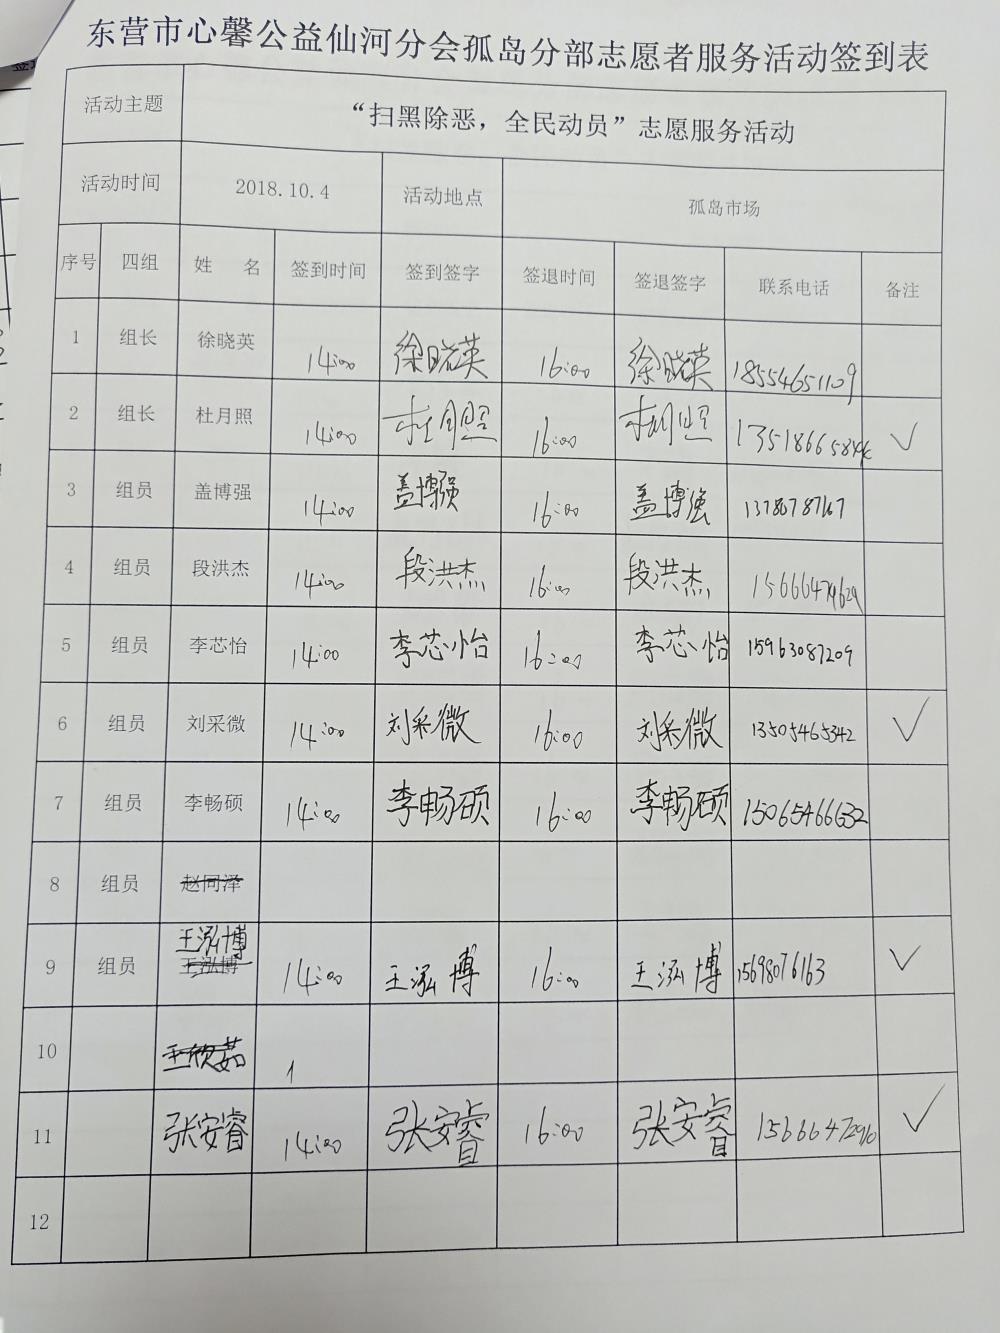 东营市心馨公益仙河分会孤岛分部志愿者服务活动签到表
活动主题 “扫黑除恶，全民动员”志愿服务活动
活动时间 2018.10.4 活动地点 孤岛市场
序号 四组 姓 名 签到时间 签到签字 签退时间 签退签字 联系电话 备注
1 组长 徐晓英 14:00 徐晓英 16:00 徐晓英 18554651109
2 组长 杜月照 14:00 杜月照 16:00 杜月照 √
3 组员 盖博强 14:00 盖博强 16:00 盖博强
4 组员 段洪杰 14:00 段洪杰 16:00 段洪杰
5 组员 李芯怡 14:00 李芯怡 16:00 李芯怡 15963087209
6 组员 刘采微 14:00 刘采微 16:00 刘采微 13505465342 √
7 组员 李畅硕 14:00 李畅硕 16:00 李畅硕 15065466632
8 组员 赵同泽
王泓博
9 组员 王泓博 14:00 王泓博 16:00 王泓博 15698076163 √
10 王欣茹 1
11 张安睿 14:00 张安睿 16:00 张安睿 √
12